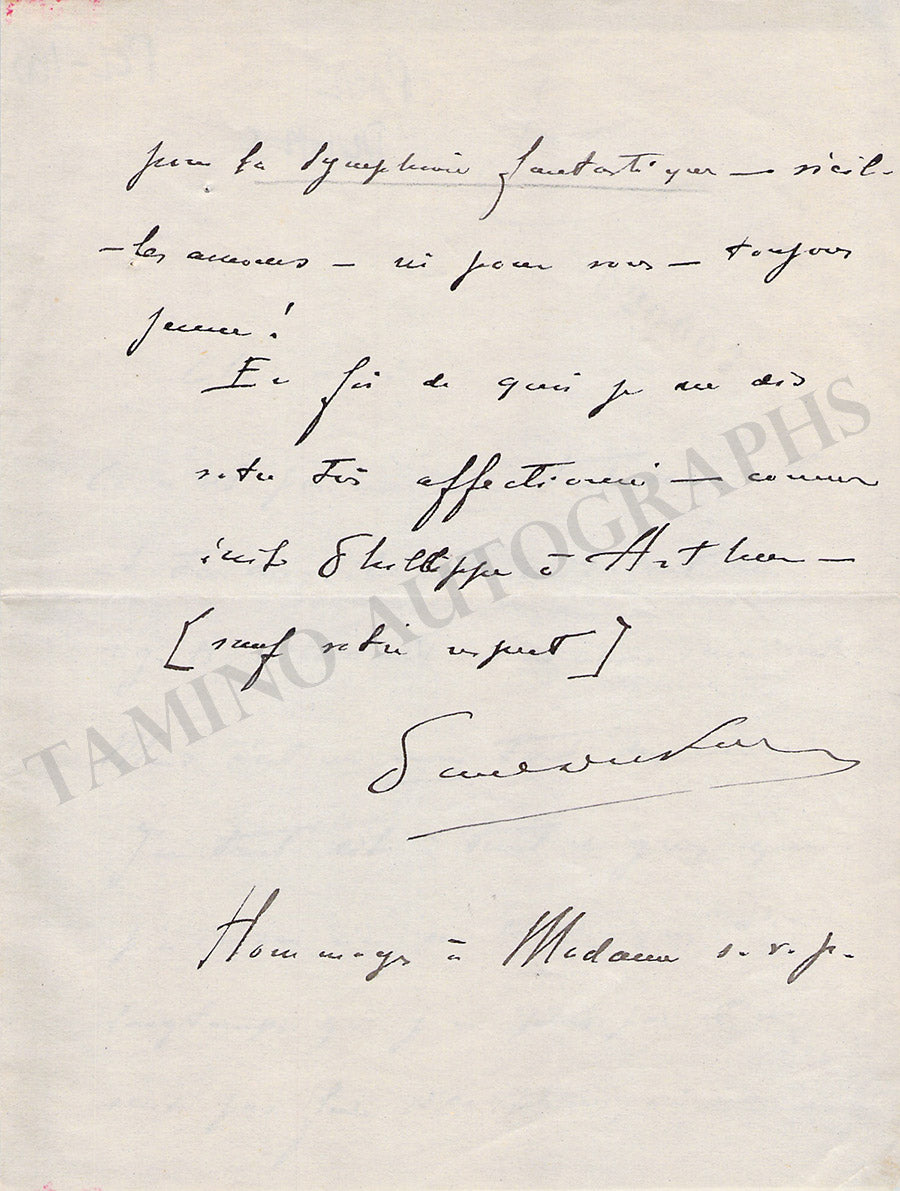 pour la Symphonie fantastique — vieil-
-les amours — ni pour vous — toujours
jeune!
En foi de quoi je me dis
votre très affectionné — comme
écrit Philippe à Arthur —
[sauf votre respect]
Paul Dukas
Hommages à Madame s.v.p.
TAMINO AUTOGRAPHS